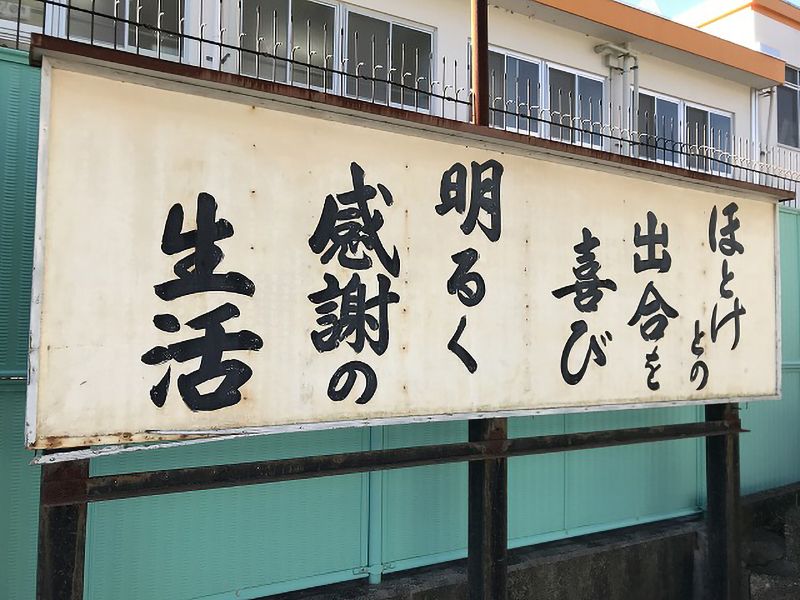 ほとけ
との
出合を
喜び
明るく
感謝の
生活